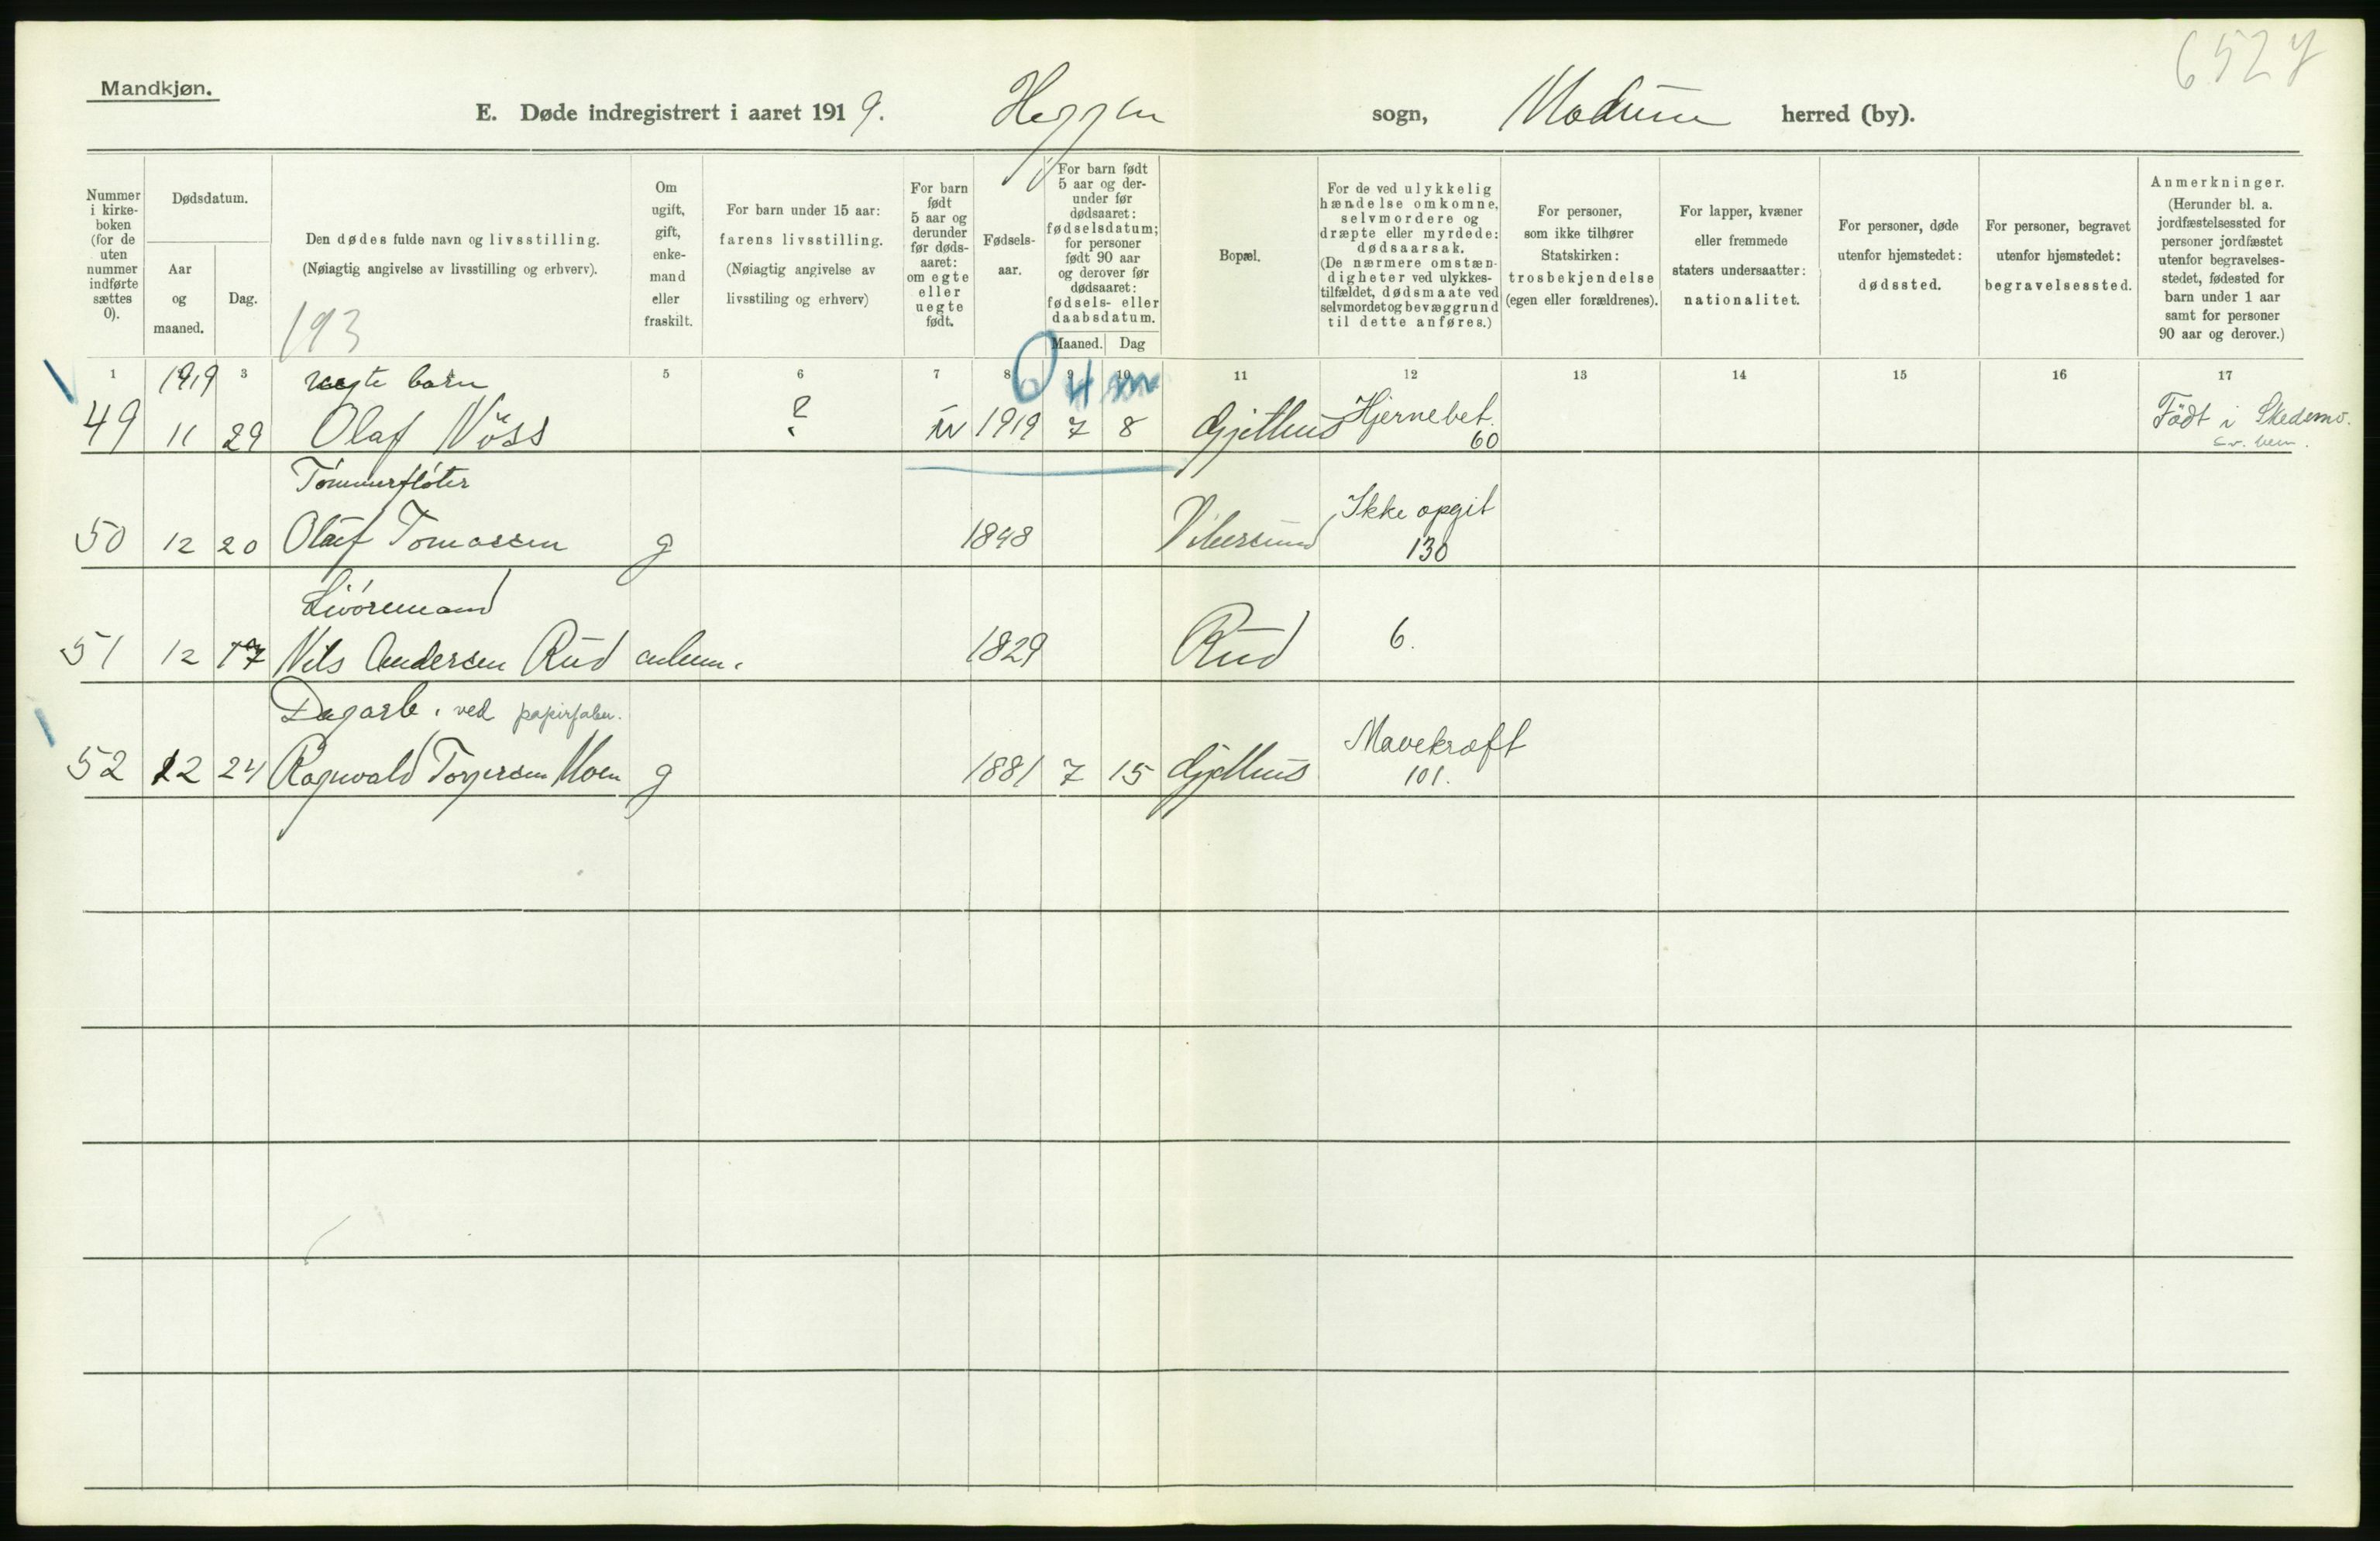 6527
Mandkjøn.
E. Døde indregistrert i aaret 1919. Heggen sogn, Modum herred (by).
Nummer i kirkeboken (for de uten nummer indførte sættes 0).
Dødsdatum.
Aar og maaned.
Dag.
Den dødes fulde navn og livsstilling.
(Nøiagtig angivelse av livsstilling og erhverv).
193
Om ugift, gift, enkemand eller fraskilt.
For barn under 15 aar: farens livsstilling.
(Nøiagtig angivelse av livsstiling og erhverv)
For barn født 5 aar og derunder før dødsaaret: om egte eller uegte født.
Fødselsaar.
For barn født 5 aar og derunder før dødsaaret: fødselsdatum; for personer født 90 aar og derover før dødsaaret: fødsels- eller daabsdatum.
Maaned. Dag
Bopæl.
For de ved ulykkelig hændelse omkomne, selvmordere og dræpte eller myrdede: dødsaarsak.
(De nærmere omstændigheter ved ulykkestilfældet, dødsmaate ved selvmordet og bevæggrund til dette anføres.)
For personer, som ikke tilhører Statskirken: trosbekjendelse (egen eller forældrenes).
For lapper, kvæner eller fremmede staters undersaatter: nationalitet.
For personer, døde utenfor hjemstedet: dødssted.
For personer, begravet utenfor hjemstedet: begravelsessted.
Anmerkninger.
(Herunder bl. a. jordfæstelsessted for personer jordfæstet utenfor begravelsesstedet, fødested for barn under 1 aar samt for personer 90 aar og derover.)
1 3 5 6 7 8 9 10 11 12 13 14 15 16 17
1919 uegte barn 0 4 m
49 11 29 Olaf Nöss ? u 1919 7 8 Gjethus Hjernebet. 60 Födt i Skedsmo.
Tömmerflöter
50 12 20 Olaf Tomassen g 1898 Vikersund Ikke opgit 130
51 12 17 Nils Andersen Rud enkem. 1829 Rud 6.
Dagarb. ved papirfabr.
52 12 24 Ragnvald Torgersen Moen g 1881 7 15 Gjethus Mavekræft 101.